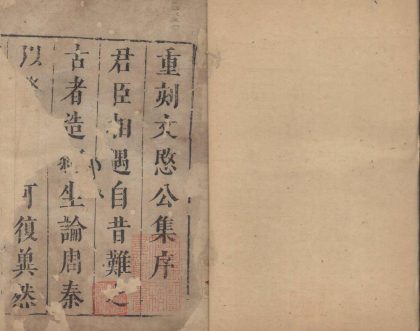 重刻文愍公集序
君臣相遇自昔難之
古者造生論周秦
以可復冀然